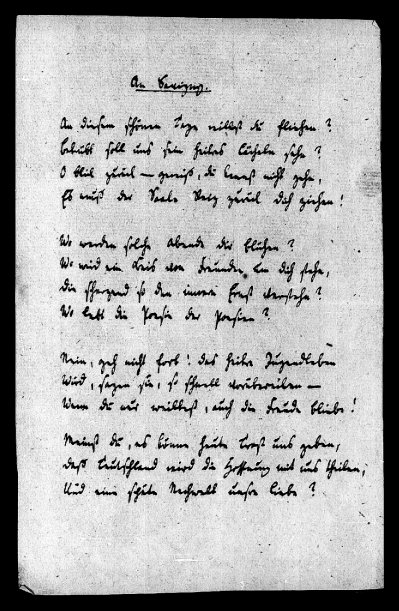 An Savigny.
An diesem schönen Tage willst du fliehen?
Betrübt soll uns sein heitres Lächeln sehn?
O blick zurück — gewiß, du kannst nicht gehn,
Es muß der Seele Reiz zurück dich ziehen!
Wo werden solche Abende dir blühen?
Wo wird ein Kreis von Freunden um dich stehn,
Die scherzend so den innern Ernst verstehn?
Wo lebt die Poesie der Poesien?
Nein, geh nicht fort! das heitre Jugendleben
Wird, sagen sie, so schnell vorübereilen —
Wenn du nur weiltest, auch die Freude bliebe!
Meinst du, es könne heute Trost uns geben,
Daß Teutschland wird die Hoffnung mit uns theilen,
Und eine späte Nachwelt unsre Liebe?